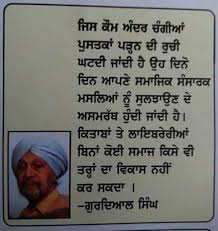 ਜਿਸ ਕੌਮ ਅੰਦਰ ਚੰਗੀਆਂ
ਪੁਸਤਕਾਂ ਪੜ੍ਹਨ ਦੀ ਰੁਚੀ
ਘਟਦੀ ਜਾਂਦੀ ਹੈ ਉਹ ਦਿਨੋਂ
ਦਿਨ ਆਪਣੇ ਸਮਾਜਿਕ ਸੰਸਾਰਕ
ਮਸਲਿਆਂ ਨੂੰ ਸੁਲਝਾਉਣ ਦੇ
ਅਸਮਰੱਥ ਹੁੰਦੀ ਜਾਂਦੀ ਹੈ।
ਕਿਤਾਬਾਂ ਤੇ ਲਾਇਬਰੇਰੀਆਂ
ਬਿਨਾਂ ਕੋਈ ਸਮਾਜ ਕਿਸੇ ਵੀ
ਤਰ੍ਹਾਂ ਦਾ ਵਿਕਾਸ ਨਹੀਂ
ਕਰ ਸਕਦਾ ।
-ਗੁਰਦਿਆਲ ਸਿੰਘ